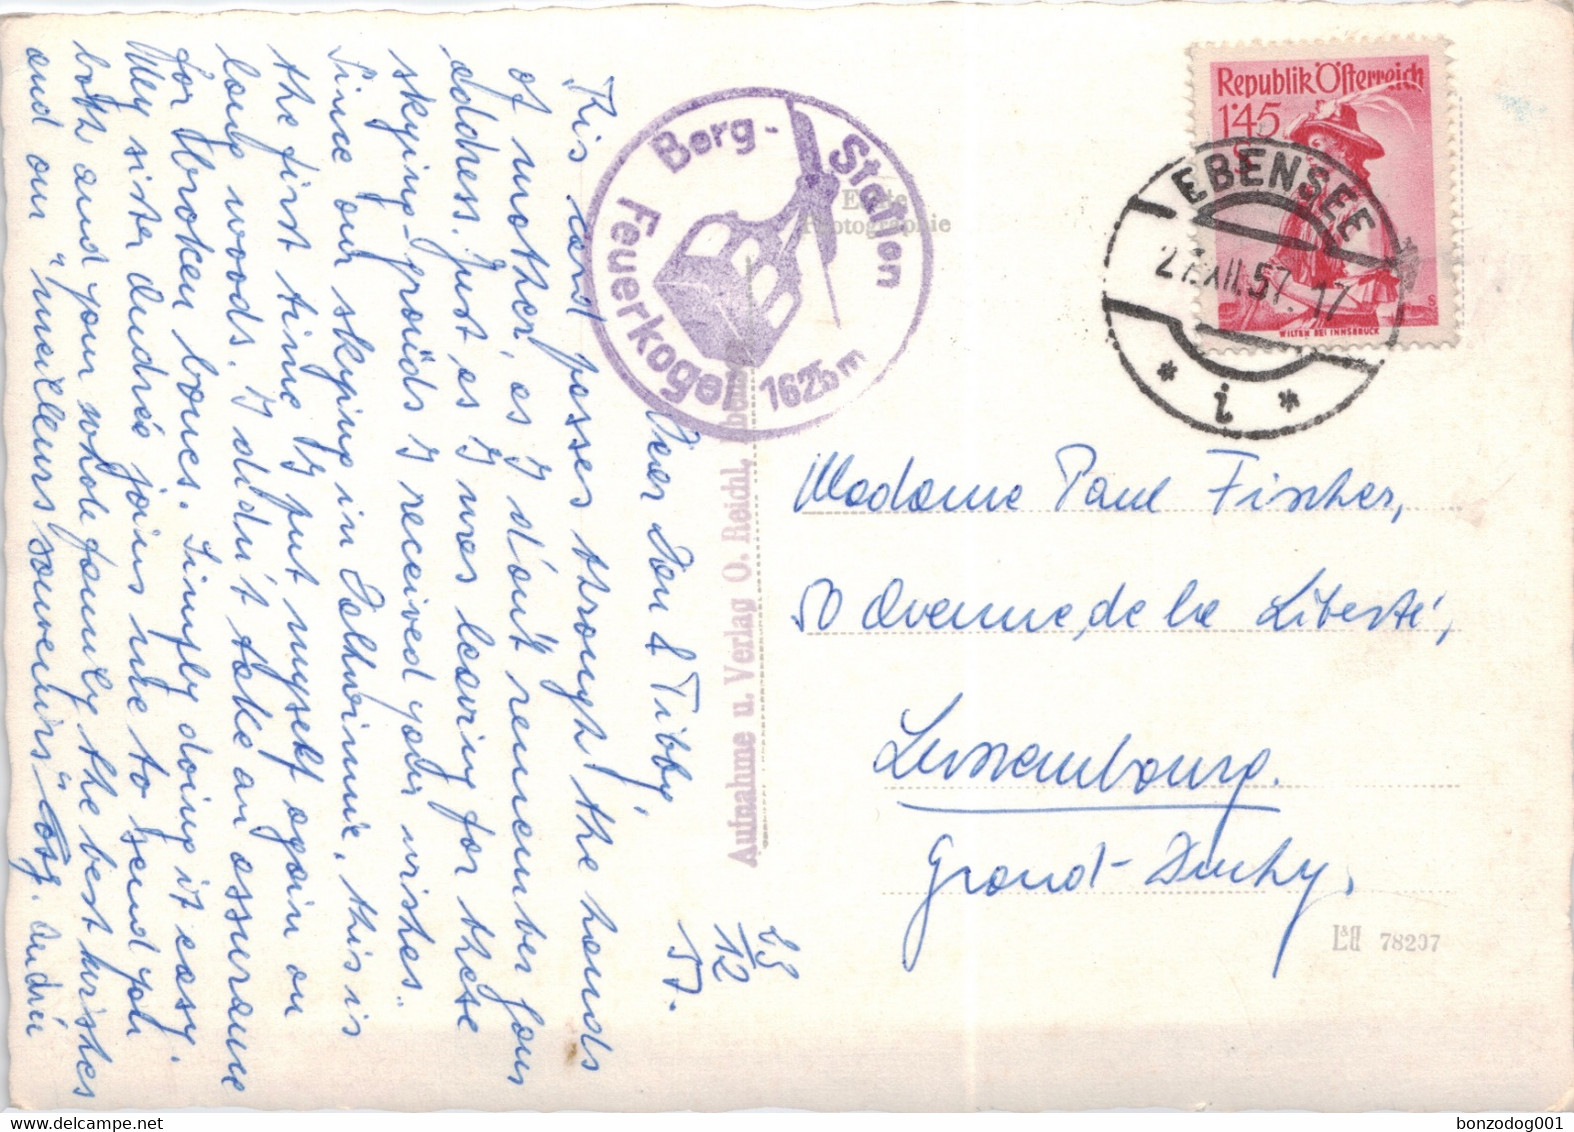 25/12 57.
Dear Don & Tibby,
This card passes through the hands
of mother, as I don't remember your
address. Just as I was leaving for these
skying-grounds I received your wishes.
Since our skying in Saltwinnie, this is
the first time I put myself again on
long woods. I didn't take an assurance
for broken bones. Simply doing it easy.
My sister Andrée joins me to send you
both and your whole family the best wishes
and our "meilleurs souvenirs"
Berg-Station
Feuerkogel 1625 m
Echte
Photographie
Aufnahme u. Verlag O. Reichl, Ebensee
Republik Österreich
1'45
S
WILTEN BEI INNSBRUCK
EBENSEE
XII.57.17
* i *
Madame Paul Fischer,
50 Avenue de la Liberté,
Luxembourg.
Grand-Duchy.
L&B 78207
bonzodog001